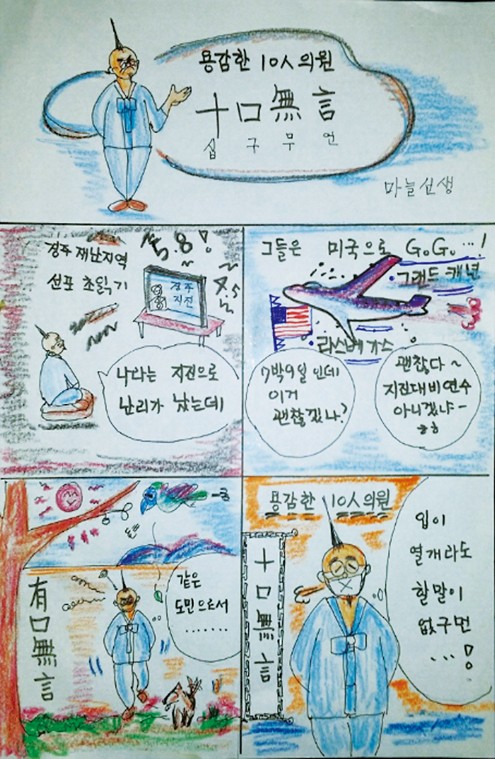 용감한 10人 의원
十口無言
십구무언
마늘선생
경주 재난지역
선포 초읽기
5.8!
4.5
경주
지진
나라는 지진으로
난리가 났는데
그들은 미국으로 GoGo...!
그랜드 캐년
라스베가스
7박9일인데
이거
괜찮겠나?
괜찮다~
지진대비연수
아니겠냐-
ㅎㅎ
有口無言
같은
도민으로서
........
용감한 10人 의원
十口無言
입이
열개라도
할말이
없구먼
...!